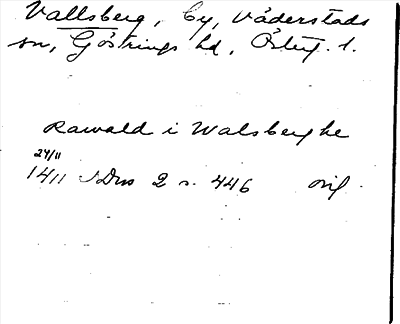 Vallsberg, by, Väderstads
sn, Göstrings hd, Österg. l.
Rawald i Walsberghe
24/11
1411 SDns 2 s. 446 orig.